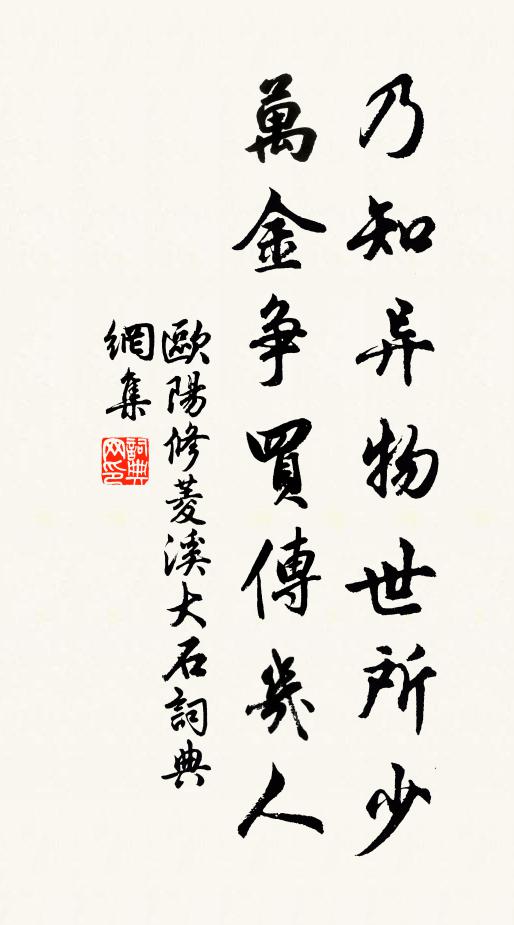 乃知异物世所少
萬金争買傳幾人
歐陽修菱溪大石詞典
網集
詞典網印